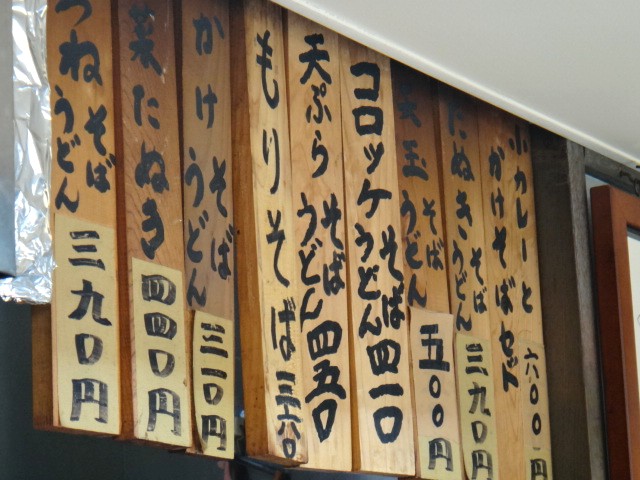 小カレーと
かけそばセット
六〇〇円
たぬき そば
うどん
三九〇円
天玉 そば
うどん
五〇〇円
コロッケ そば
うどん
四一〇
天ぷら そば
うどん
四五〇
もりそば 三六〇
かけ そば
うどん
三一〇円
菜たぬき
四四〇円
つね そば
うどん
三九〇円